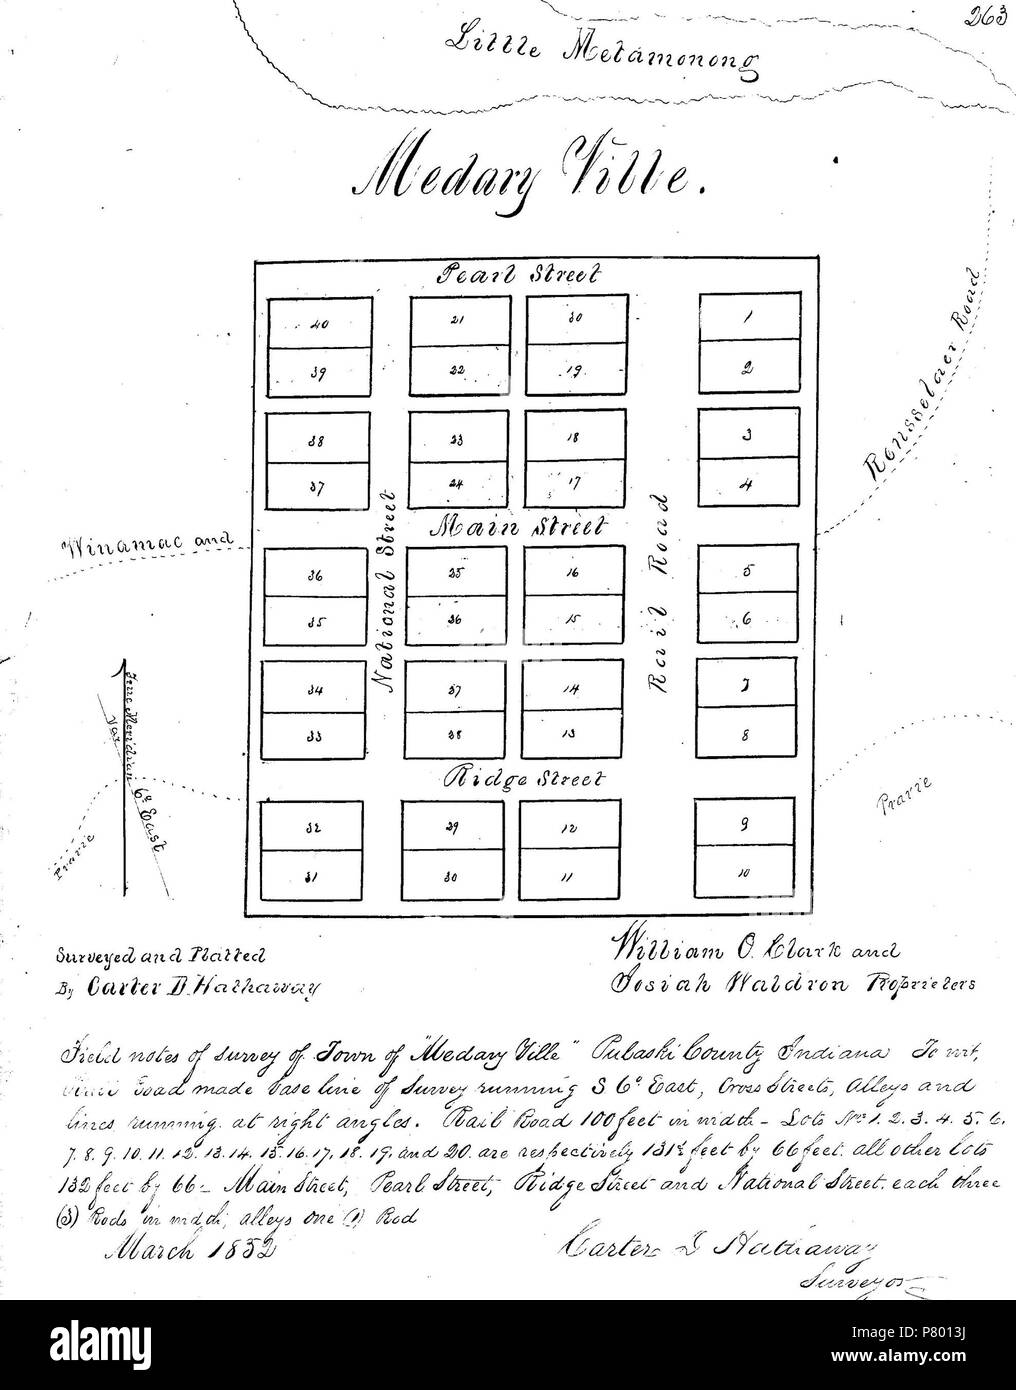 263
Little Metamonong
Medary Ville.
Pearl Street
40 21 20 1
39 22 19 2
38 23 18 3
37 24 17 4
Rensselaer Road
National Street
Main Street
Rail Road
Winamac and
36 25 16 5
35 26 15 6
34 27 14 7
33 28 13 8
True Meridian
Var 6° East
Ridge Street
Prarie
Prarie
32 29 12 9
31 30 11 10
Surveyed and Platted
By Carter D. Hathaway
William O. Clark and
Josiah Waldron Proprieters
Field notes of survey of Town of "Medary Ville" Pulaski County Indiana To wit,
Road made base line of survey running S 6° East, Cross Streets, alleys and
lines running at right angles. Rail Road 100 feet in width - Lots No 1. 2. 3. 4. 5. 6.
7. 8. 9. 10. 11. 12. 13. 14. 15. 16. 17. 18. 19. and 20. are respectively 131½ feet by 66 feet. all other lots
132 feet by 66 - Main Street, Pearl Street, Ridge Street and National Street. each three
(3) Rods in width, alleys one (1) Rod
March 1852
Carter D Hathaway
Surveyor
alamy
Image ID: P8013J
www.alamy.com